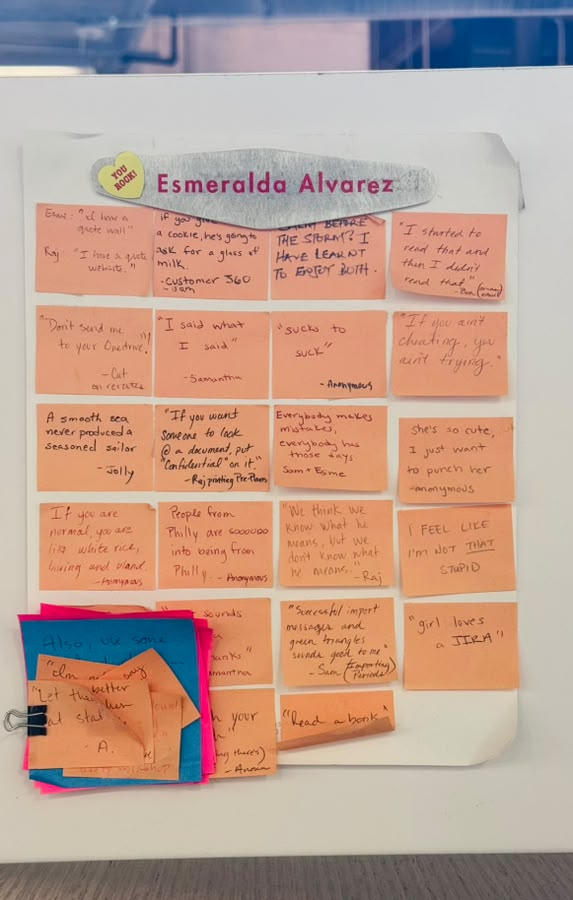 YOU
ROCK!
Esmeralda Alvarez
Esme: "I have a
quote wall"
Raj "I have a quote
website."
if you give
a cookie, he's going to
ask for a glass of
milk.
-Customer 360
-Sam
BEFORE
THE STORM? I
HAVE LEARNT
TO ENJOY BOTH.
"I started to
read that and
then I didn't
read that"
"Don't send me
to your Onedrive!"
- Cat
on
"I said what
I said"
-Samantha
"sucks to
suck"
- Anonymous
"If you ain't
cheating, you
ain't trying."
A smooth sea
never produced a
seasoned sailor
- Jolly
"If you want
someone to look
@ a document, put
"Confidential" on it."
- Raj printing Pre-Plans
Everybody makes
mistakes,
everybody has
those days
Sam + Esme
She's so cute,
I just want
to punch her
-anonymous
If you are
normal, you are
like white rice,
boring and bland.
- Anonymous
People from
Philly are soooooo
into being from
Philly.
- Anonymous
"We think we
know what he
means, but we
don't know what
he means."
- Raj
I FEEL LIKE
I'M NOT THAT
STUPID
Also, use some
say
better
"Let the
- A.
sounds
"Successful import
messages and
green triangles
sounds good to me"
- Sam (Importing
Periods)
"girl loves
a JIRA"
your
"Read a book"